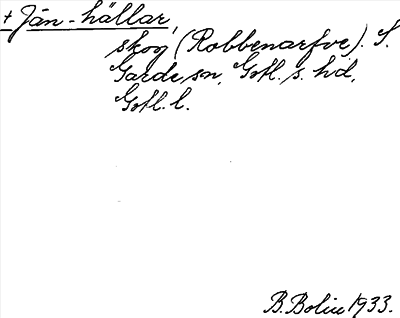 + Jän-hällar,
skog (Robbenarfve). S.
Garde sn, Gotl. s. hd,
Gotl. l.
B. Bolin 1933.